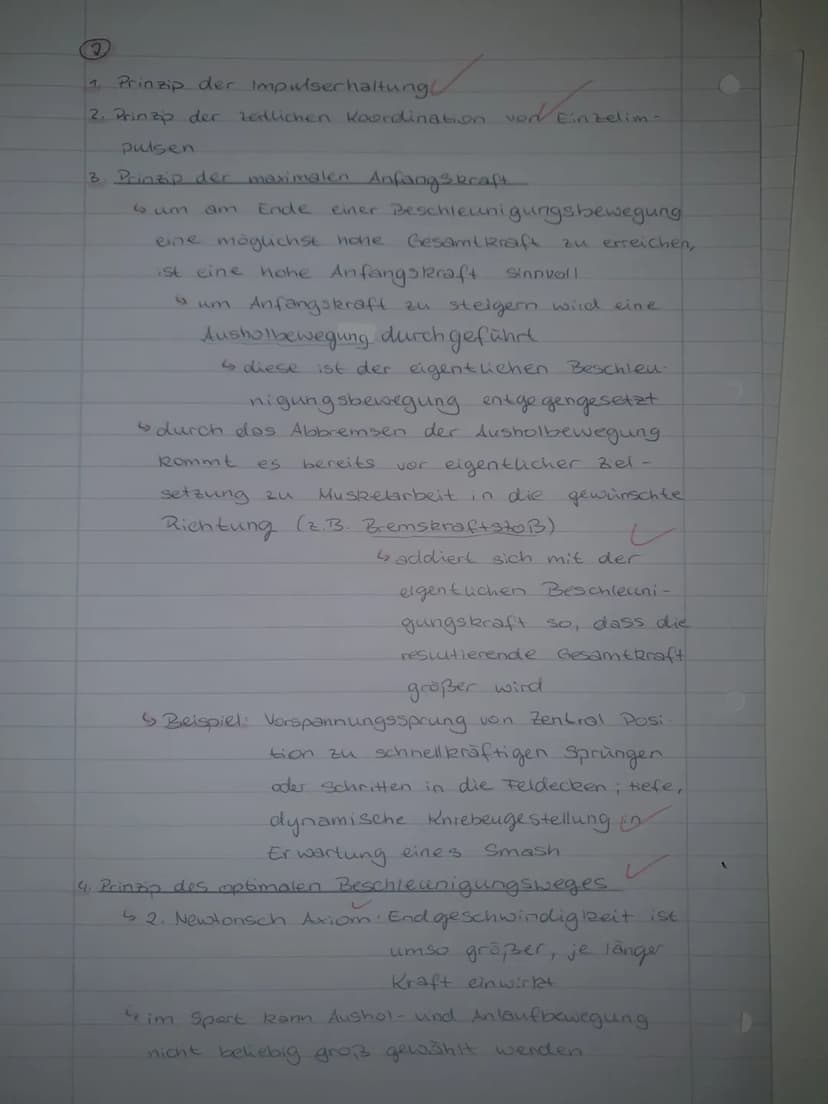 ②
1. Prinzip der Impulserhaltung
2. Prinzip der zeitlichen Koordination von Einzelim-
pulsen
3. Prinzip der maximalen Anfangskraft
↳ um am Ende einer Beschleunigungsbewegung
eine möglichst hohe Gesamtkraft zu erreichen,
ist eine hohe Anfangskraft sinnvoll
↳ um Anfangskraft zu steigern wird eine
Ausholbewegung durchgeführt
↳ diese ist der eigentlichen Beschleu-
nigungsbewegung entgegengesetzt
↳ durch das Abbremsen der Ausholbewegung
kommt es bereits vor eigentlicher Ziel-
setzung zu Muskelarbeit in die gewünschte
Richtung (z.B. Bremskraftstoß)
↳ addiert sich mit der
eigentlichen Beschleuni-
gungskraft so, dass die
resultierende Gesamtkraft
größer wird
↳ Beispiel: Vorspannungssprung von Zentral Posi-
tion zu schnellkräftigen Sprüngen
oder Schritten in die Feldecken; tiefe,
dynamische Kniebeugestellung in
Erwartung eines Smash
4. Prinzip des optimalen Beschleunigungsweges
↳ 2. Newtonsch Axiom: Endgeschwindigkeit ist
umso größer, je länger
Kraft einwirkt
↳ im Sport kann Aushol- und Anlaufbewegung
nicht beliebig groß gewählt werden